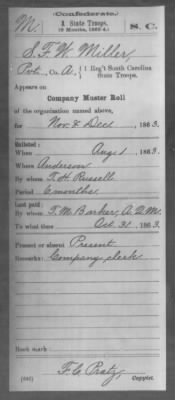 (Confederate.)
M. 1 State Troops, S. C.
(6 Months, 1863-4.)
S. F. W. Miller
Pvt., Co. A, 1 Reg't South Carolina State Troops.
Appears on
Company Muster Roll
of the organization named above,
for Nov & Dec, 1863.
Enlisted:
When Aug 1, 1863.
Where Anderson
By whom T. H. Russell
Period 6 months
Last paid:
By whom T. M. Barker, A. Q. M.
To what time Oct 31, 1863.
Present or absent Present
Remarks: Company clerk
Book mark:
F. C. Pratz
Copyist.